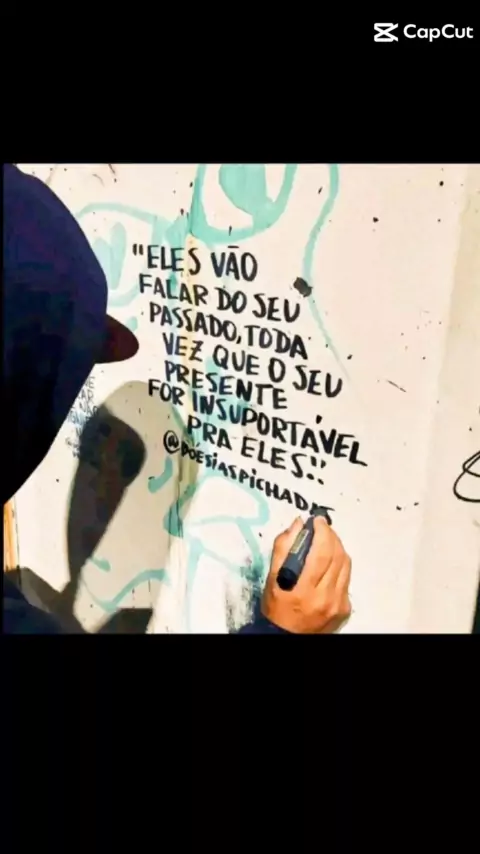 CapCut
"ELES VÃO
FALAR DO SEU
PASSADO, TODA
VEZ QUE O SEU
PRESENTE
FOR INSUPORTÁVEL
PRA ELES!"